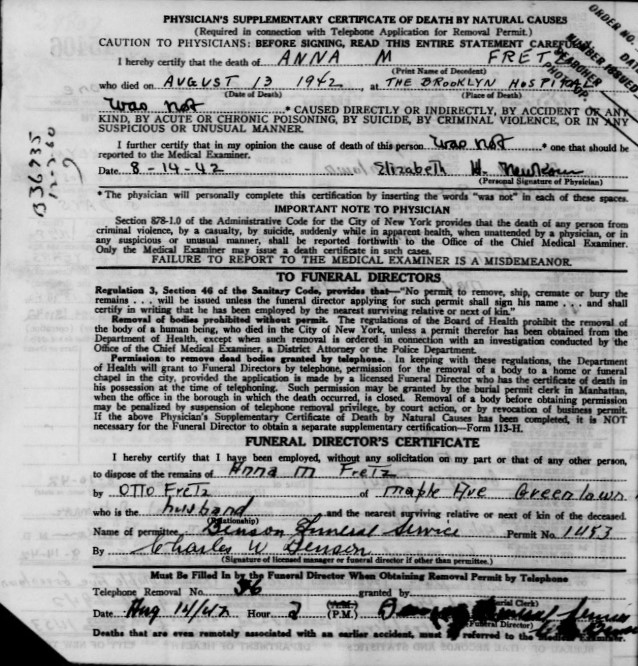 PHYSICIAN'S SUPPLEMENTARY CERTIFICATE OF DEATH BY NATURAL CAUSES
(Required in connection with Telephone Application for Removal Permit.)
CAUTION TO PHYSICIANS: BEFORE SIGNING, READ THIS ENTIRE STATEMENT CAREFULLY
ORDER NO.
DATE
NUMBER ISSUED
SEARCHER
I hereby certify that the death of ANNA M FRETZ
(Print Name of Decedent)
who died on AUGUST 13 1942, at THE BROOKLYN HOSPITAL
(Date of Death) (Place of Death)
was not * CAUSED DIRECTLY OR INDIRECTLY, BY ACCIDENT OR ANY
KIND, BY ACUTE OR CHRONIC POISONING, BY SUICIDE, BY CRIMINAL VIOLENCE, OR IN ANY
SUSPICIOUS OR UNUSUAL MANNER.
I further certify that in my opinion the cause of death of this person was not * one that should be
reported to the Medical Examiner.
Date 8-14-42 Elizabeth H.
(Personal Signature of Physician)
B 36735
* The physician will personally complete this certification by inserting the words "was not" in each of these spaces.
IMPORTANT NOTE TO PHYSICIAN
Section 878-1.0 of the Administrative Code for the City of New York provides that the death of any person from
criminal violence, by a casualty, by suicide, suddenly while in apparent health, when unattended by a physician, or in
any suspicious or unusual manner, shall be reported forthwith to the Office of the Chief Medical Examiner.
Only the Medical Examiner may issue a death certificate in such cases.
FAILURE TO REPORT TO THE MEDICAL EXAMINER IS A MISDEMEANOR.
TO FUNERAL DIRECTORS
Regulation 3, Section 46 of the Sanitary Code, provides that—"No permit to remove, ship, cremate or bury the
remains . . . will be issued unless the funeral director applying for such permit shall sign his name . . . and shall
certify in writing that he has been employed by the nearest surviving relative or next of kin."
Removal of bodies prohibited without permit. The regulations of the Board of Health prohibit the removal of
the body of a human being, who died in the City of New York, unless a permit therefor has been obtained from the
Department of Health, except when such removal is ordered in connection with an investigation conducted by the
Office of the Chief Medical Examiner, a District Attorney or the Police Department.
Permission to remove dead bodies granted by telephone. In keeping with these regulations, the Department
of Health will grant to Funeral Directors by telephone, permission for the removal of a body to a home or funeral
chapel in the city, provided the application is made by a licensed Funeral Director who has the certificate of death in
his possession at the time of telephoning. Such permission may be granted by the burial permit clerk in Manhattan,
when the office in the borough in which the death occurred, is closed. Removal of a body before obtaining permission
may be penalized by suspension of telephone removal privilege, by court action, or by revocation of business permit.
If the above Physician's Supplementary Certificate of Death by Natural Causes has been completed, it is NOT
necessary for the Funeral Director to obtain a separate supplementary certification—Form 113-H.
FUNERAL DIRECTOR'S CERTIFICATE
I hereby certify that I have been employed, without any solicitation on my part or that of any other person,
to dispose of the remains of Anna M Fretz
by Otto Fretz of Maple Ave Greenlawn
who is the husband and the nearest surviving relative or next of kin of the deceased.
(Relationship)
Name of permittee Benson Funeral Service Permit No. 1453
By Charles W Benson
(Signature of licensed manager or funeral director if other than permittee.)
Must Be Filled in by the Funeral Director When Obtaining Removal Permit by Telephone
Telephone Removal No. 36 granted by
(Burial Clerk)
Date Aug 14/42 Hour 2 (P.M.)
(Funeral Director)
Deaths that are even remotely associated with an earlier accident, must be referred to the Medical